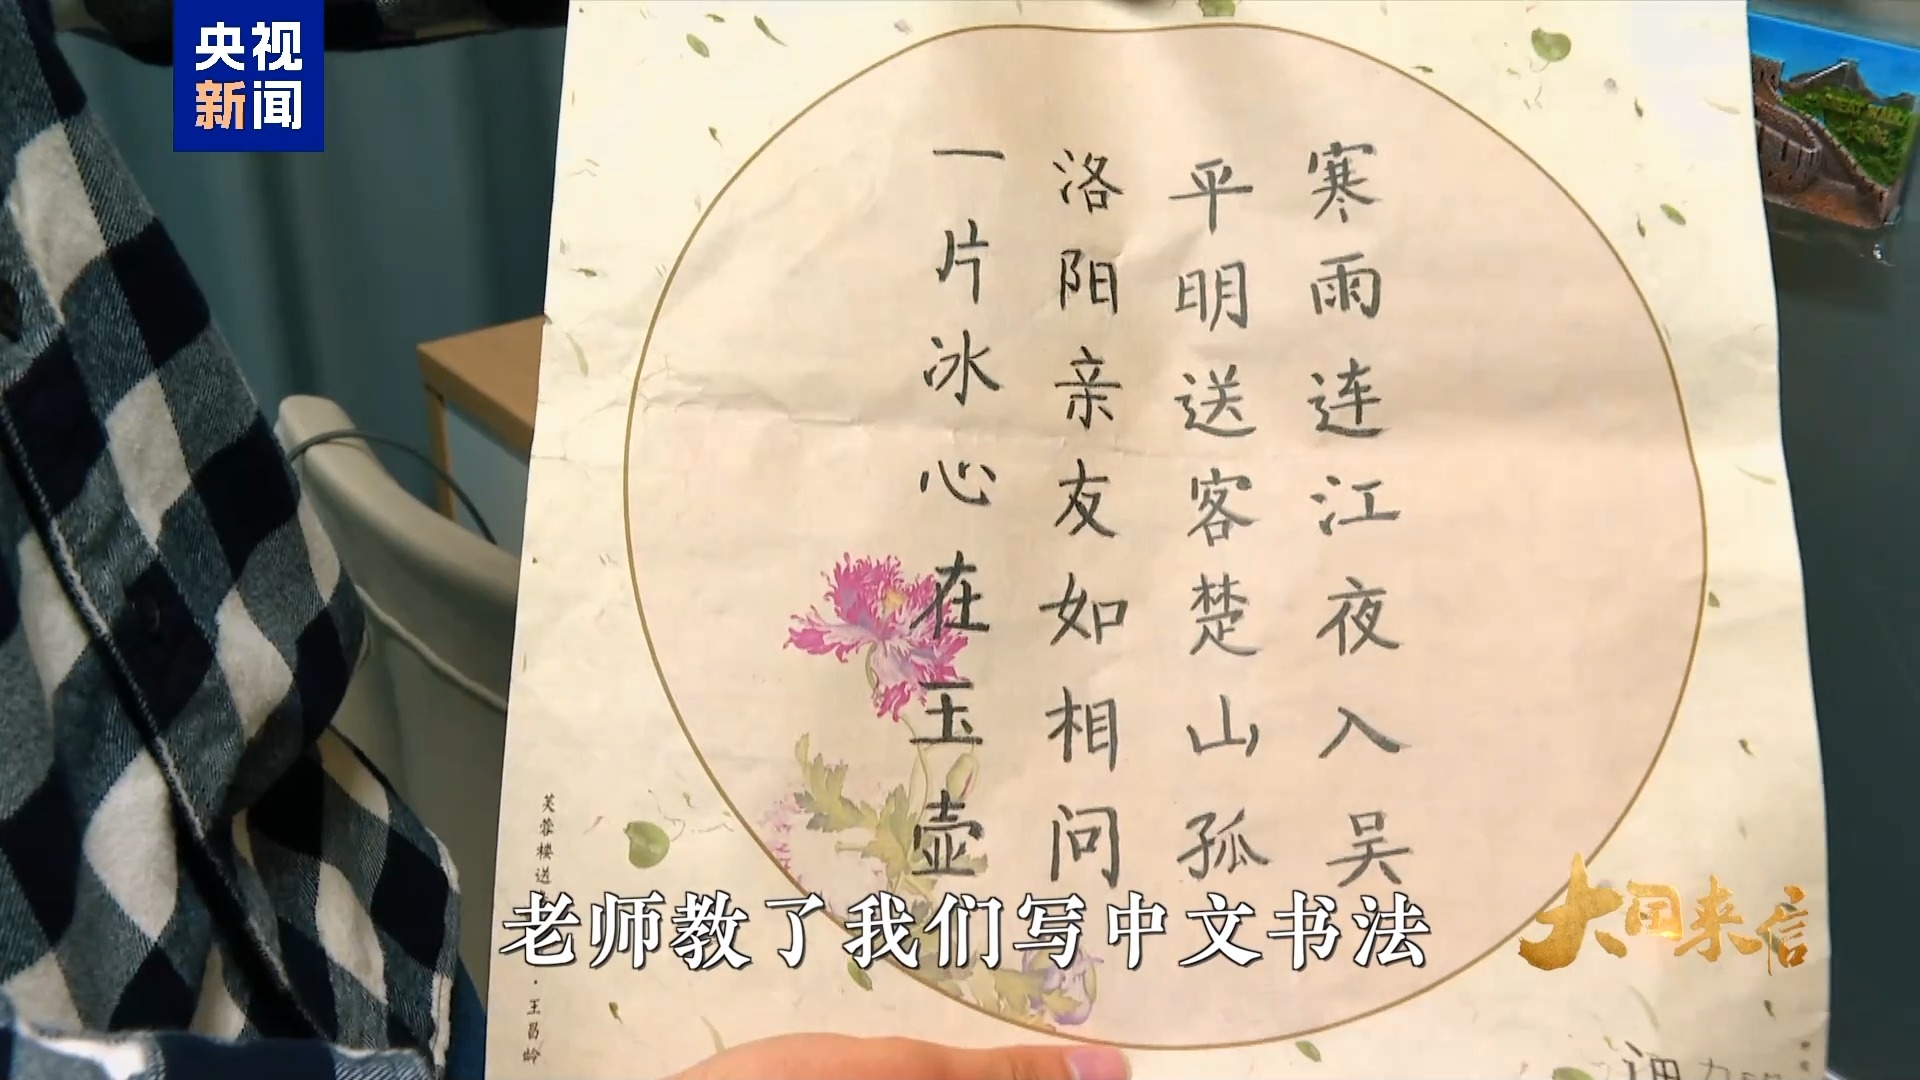 央视
新闻
寒雨连江夜入吴
平明送客楚山孤
洛阳亲友如相问
一片冰心在玉壶
芙蓉楼送
·王昌龄
老师教了我们写中文书法
大国来信